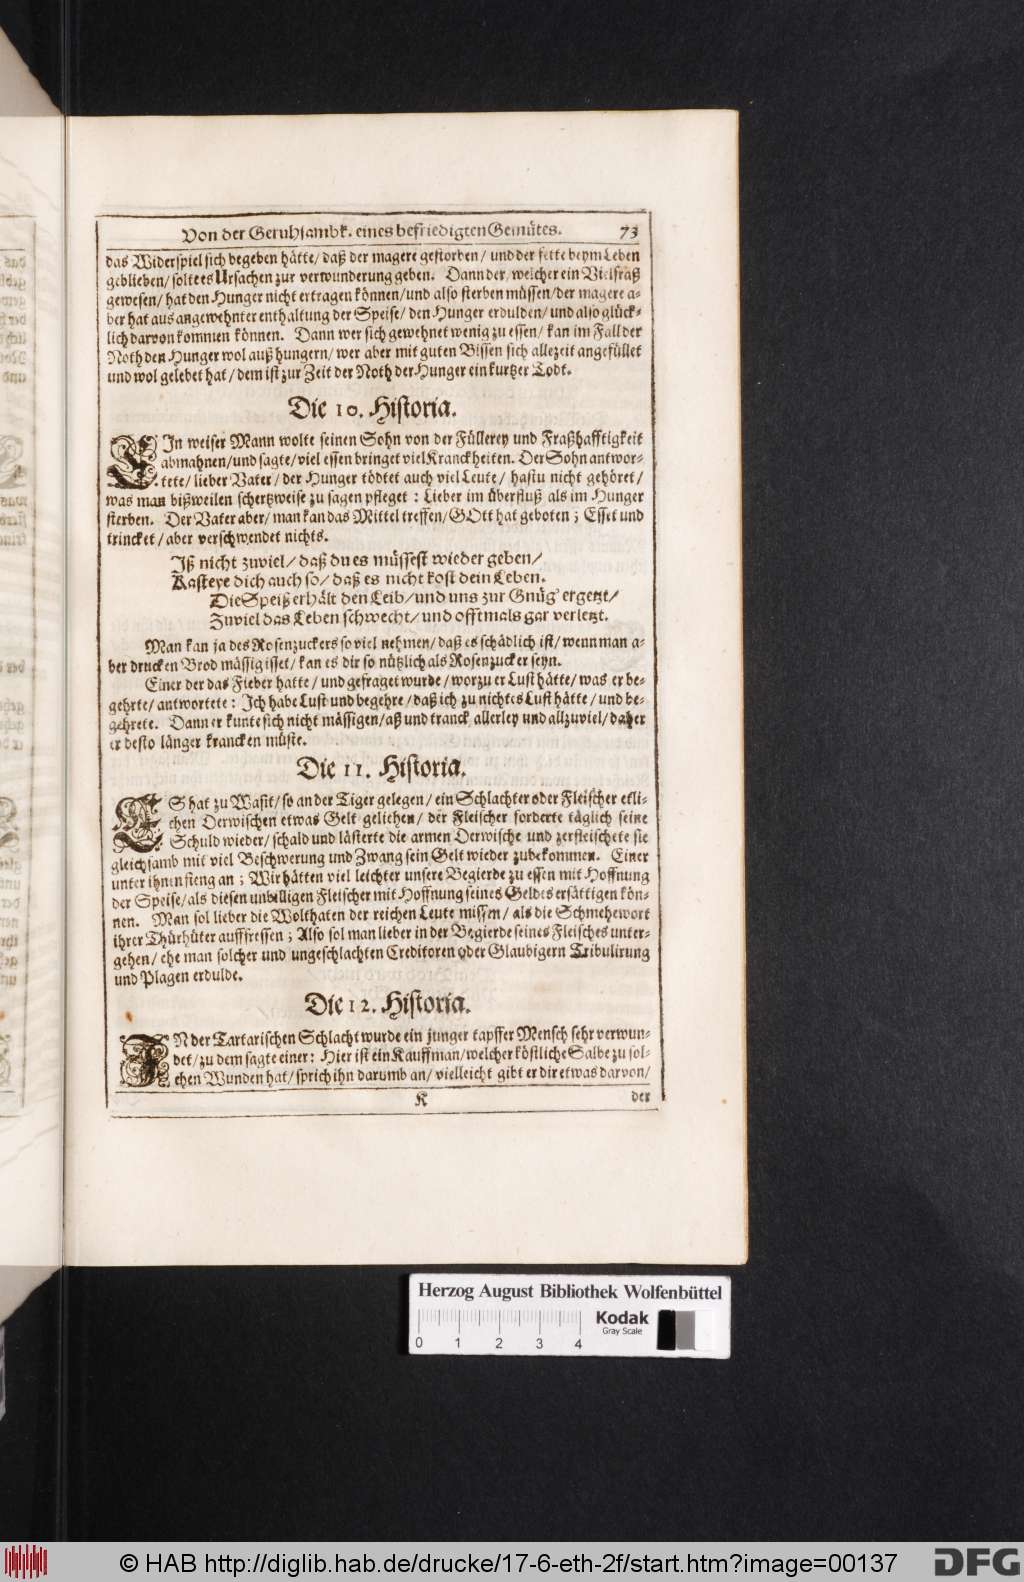 Von der Geruhsambk. eines befriedigten Gemütes. 73
das Widerspiel sich begeben hätte / daß der magere gestorben / und der fette beym Leben
geblieben / solte es Ursachen zur verwunderung geben. Dann der, welcher ein Vielfraß
gewesen / hat den Hunger nicht ertragen können / und also sterben müssen / der magere a-
ber hat aus angewehnter enthaltung der Speise / den Hunger erdulden / und also glück-
lich darvon kommen können. Dann wer sich gewehnet wenig zu essen / kan im Fall der
Noth den Hunger wol außhungern / wer aber mit guten Bissen sich allezeit angefüllet
und wol gelebet hat / dem ist zur Zeit der Noth der Hunger ein kurtzer Todt.
Die 10. Historia.
EIn weiser Mann wolte seinen Sohn von der Füllerey und Fraßhafftigkeit
abmahnen / und sagte / viel essen bringet viel Kranckheiten. Der Sohn antwor-
tete / lieber Vater / der Hunger tödtet auch viel Leute / hastu nicht gehöret /
was man bißweilen schertzweise zu sagen pfleget : Lieber im überfluß als im Hunger
sterben. Der Vater aber / man kan das Mittel treffen / GOtt hat geboten ; Esset und
trincket / aber verschwendet nichts.
Iß nicht zuviel / daß du es müssest wieder geben /
Kasteye dich auch so / daß es nicht kost dein Leben.
Die Speiß erhält den Leib / und uns zur Gnüg' ergetzt /
Zuviel das Leben schwecht / und offtmals gar verletzt.
Man kan ja des Rosenzuckers so viel nehmen / daß es schädlich ist / wenn man a-
ber drucken Brod mässig isset / kan es dir so nützlich als Rosenzucker seyn.
Einer der das Fieber hatte / und gefraget wurde / worzu er Lust hätte / was er be-
gehrte / antwortete : Ich habe Lust und begehre / daß ich zu nichtes Lust hätte / und be-
gehrete. Dann er kunte sich nicht mässigen / aß und tranck allerley und allzuviel / daher
er desto länger krancken müste.
Die 11. Historia.
ES hat zu Wasit / so an der Tiger gelegen / ein Schlachter oder Fleischer etli-
chen Derwischen etwas Gelt geliehen / der Fleischer forderte täglich seine
Schuld wieder / schald und lästerte die armen Derwische und zerfleischete sie
gleichsamb mit viel Beschwerung und Zwang sein Gelt wieder zubekommen. Einer
unter ihnen fieng an ; Wir hätten viel leichter unsere Begierde zu essen mit Hoffnung
der Speise / als diesen unbilligen Fleischer mit Hoffnung seines Geldes ersättigen kön-
nen. Man sol lieber die Wolthaten der reichen Leute missen / als die Schmehewort
ihrer Thürhüter aufffressen ; Also sol man lieber in der Begierde seines Fleisches unter-
gehen / ehe man solcher und ungeschlachten Creditoren oder Glaubigern Tribulirung
und Plagen erdulde.
Die 12. Historia.
IN der Tartarischen Schlacht wurde ein junger tapffer Mensch sehr verwun-
det / zu dem sagte einer : Hier ist ein Kauffman / welcher köstliche Salbe zu sol-
chen Wunden hat / sprich ihn darumb an / vielleicht gibt er dir etwas darvon /
K der
Herzog August Bibliothek Wolfenbüttel
Kodak
Gray Scale
0 1 2 3 4
© HAB http://diglib.hab.de/drucke/17-6-eth-2f/start.htm?image=00137
DFG